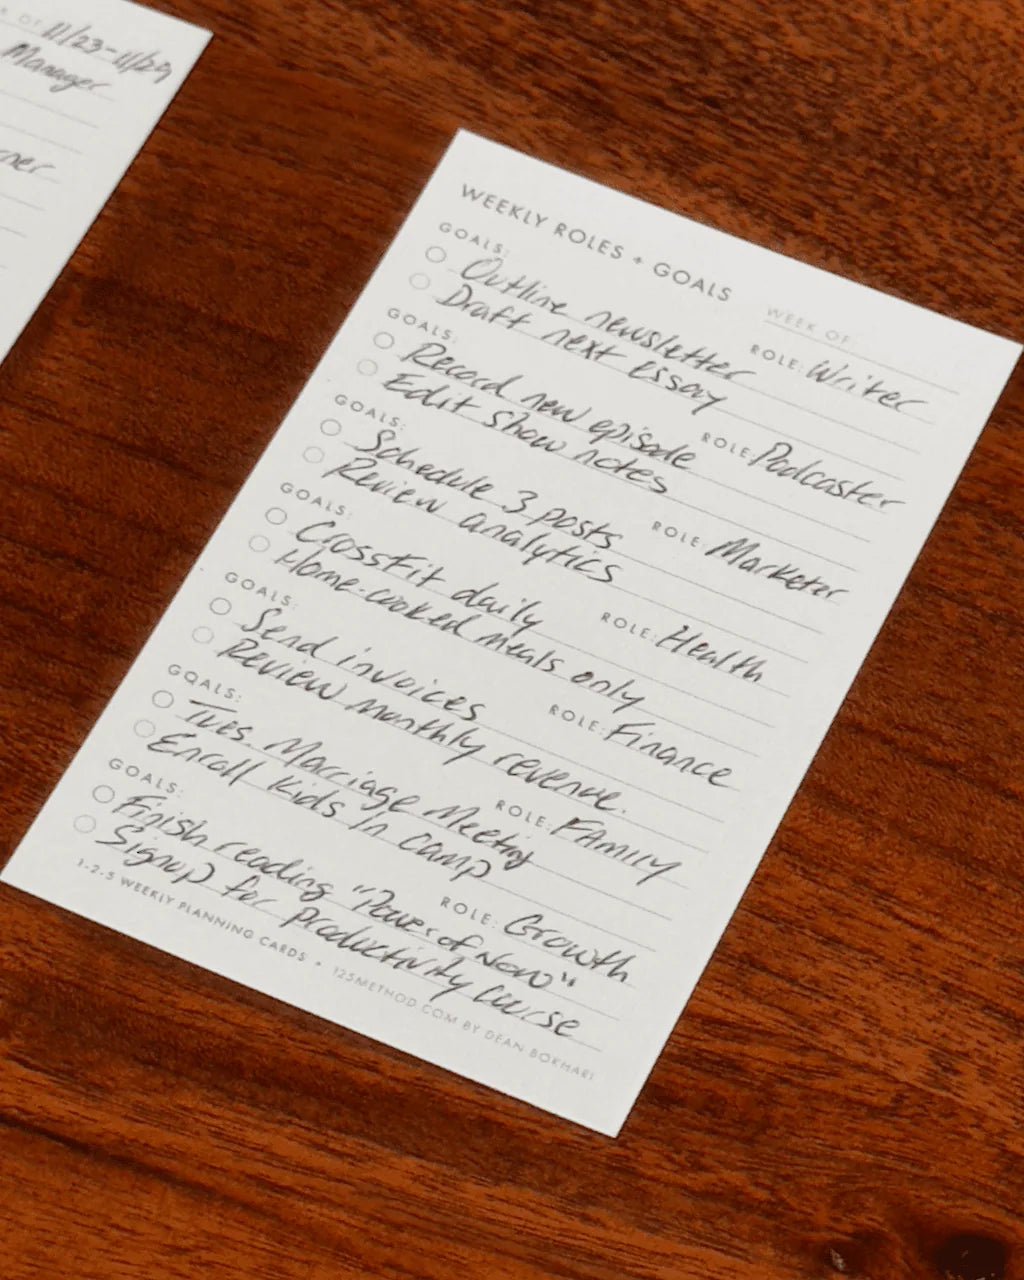 OF 11/23-11/29
Manager
WEEKLY ROLES + GOALS
WEEK OF:
GOALS:
ROLE: Writer
Outline newsletter
Draft next essay
GOALS:
ROLE: Podcaster
Record new episode
Edit show notes
GOALS:
ROLE: Marketer
Schedule 3 posts
Review analytics
GOALS:
ROLE: Health
CrossFit daily
Home-cooked meals only
GOALS:
ROLE: Finance
Send invoices
Review monthly revenue.
GOALS:
ROLE: FAMILY
Tues. Marriage Meeting
Enroll kids in camp
GOALS:
ROLE: Growth
Finish reading "Power of Now"
Signup for productivity course
1-2-5 WEEKLY PLANNING CARDS • 125METHOD.COM BY DEAN BOKHARI